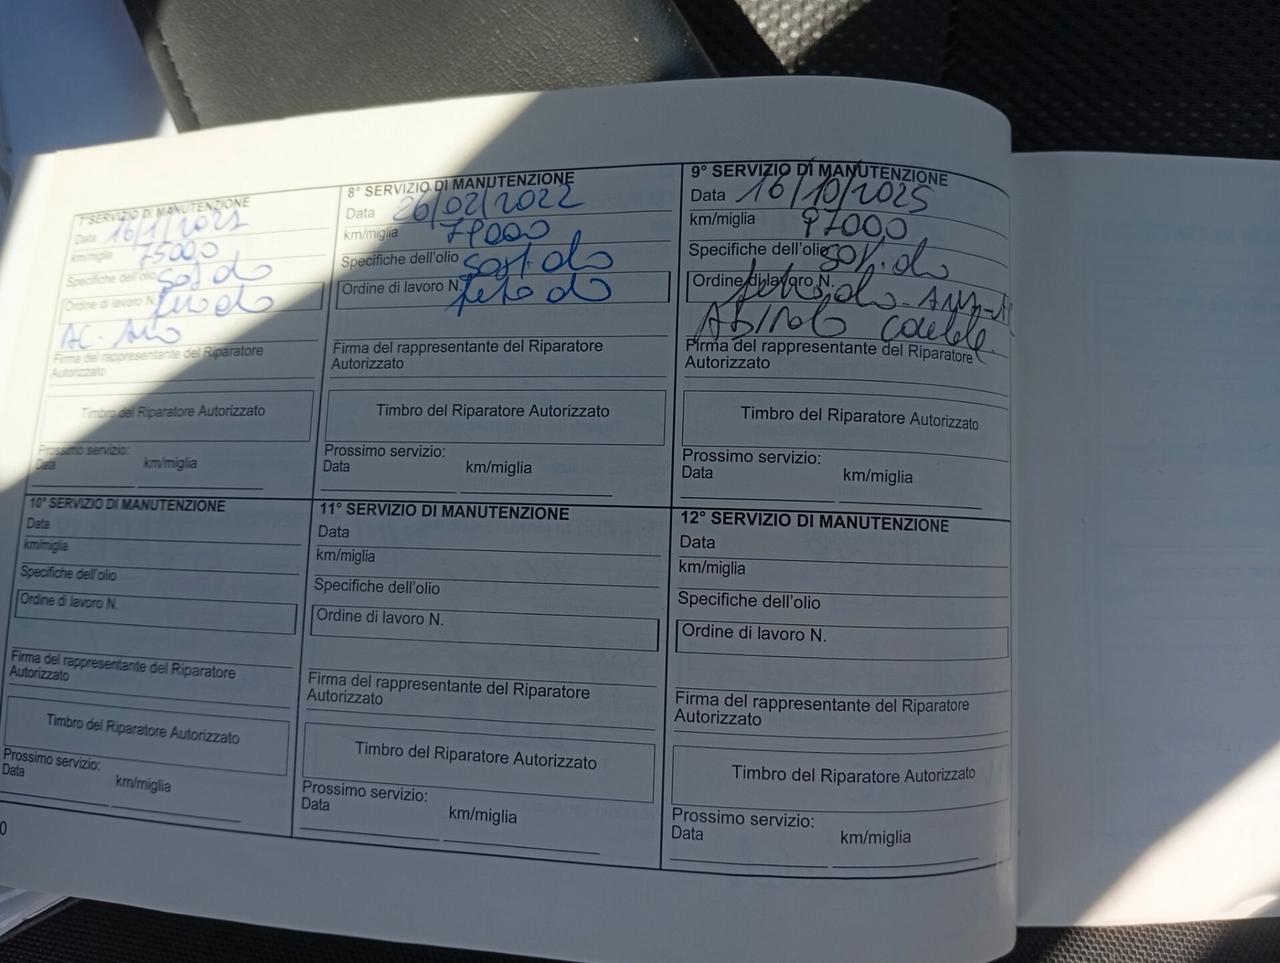 7° SERVIZIO DI MANUTENZIONE
Data 16/1/2021
km/miglia 75000
Specifiche dell'olio sost. olio
Ordine di lavoro N. filtro olio
AC-
Firma del rappresentante del Riparatore
Autorizzato
Timbro del Riparatore Autorizzato
Prossimo servizio:
Data km/miglia
8° SERVIZIO DI MANUTENZIONE
Data 26/02/2022
km/miglia 79000
Specifiche dell'olio sost. olio
Ordine di lavoro N. filtro olio
Firma del rappresentante del Riparatore
Autorizzato
Timbro del Riparatore Autorizzato
Prossimo servizio:
Data km/miglia
9° SERVIZIO DI MANUTENZIONE
Data 16/10/2025
km/miglia 97000
Specifiche dell'olio sost. olio
Ordine di lavoro N. filtro olio -
Firma del rappresentante del Riparatore
Autorizzato
Timbro del Riparatore Autorizzato
Prossimo servizio:
Data km/miglia
10° SERVIZIO DI MANUTENZIONE
Data
km/miglia
Specifiche dell'olio
Ordine di lavoro N.
Firma del rappresentante del Riparatore
Autorizzato
Timbro del Riparatore Autorizzato
Prossimo servizio:
Data km/miglia
11° SERVIZIO DI MANUTENZIONE
Data
km/miglia
Specifiche dell'olio
Ordine di lavoro N.
Firma del rappresentante del Riparatore
Autorizzato
Timbro del Riparatore Autorizzato
Prossimo servizio:
Data km/miglia
12° SERVIZIO DI MANUTENZIONE
Data
km/miglia
Specifiche dell'olio
Ordine di lavoro N.
Firma del rappresentante del Riparatore
Autorizzato
Timbro del Riparatore Autorizzato
Prossimo servizio:
Data km/miglia
0